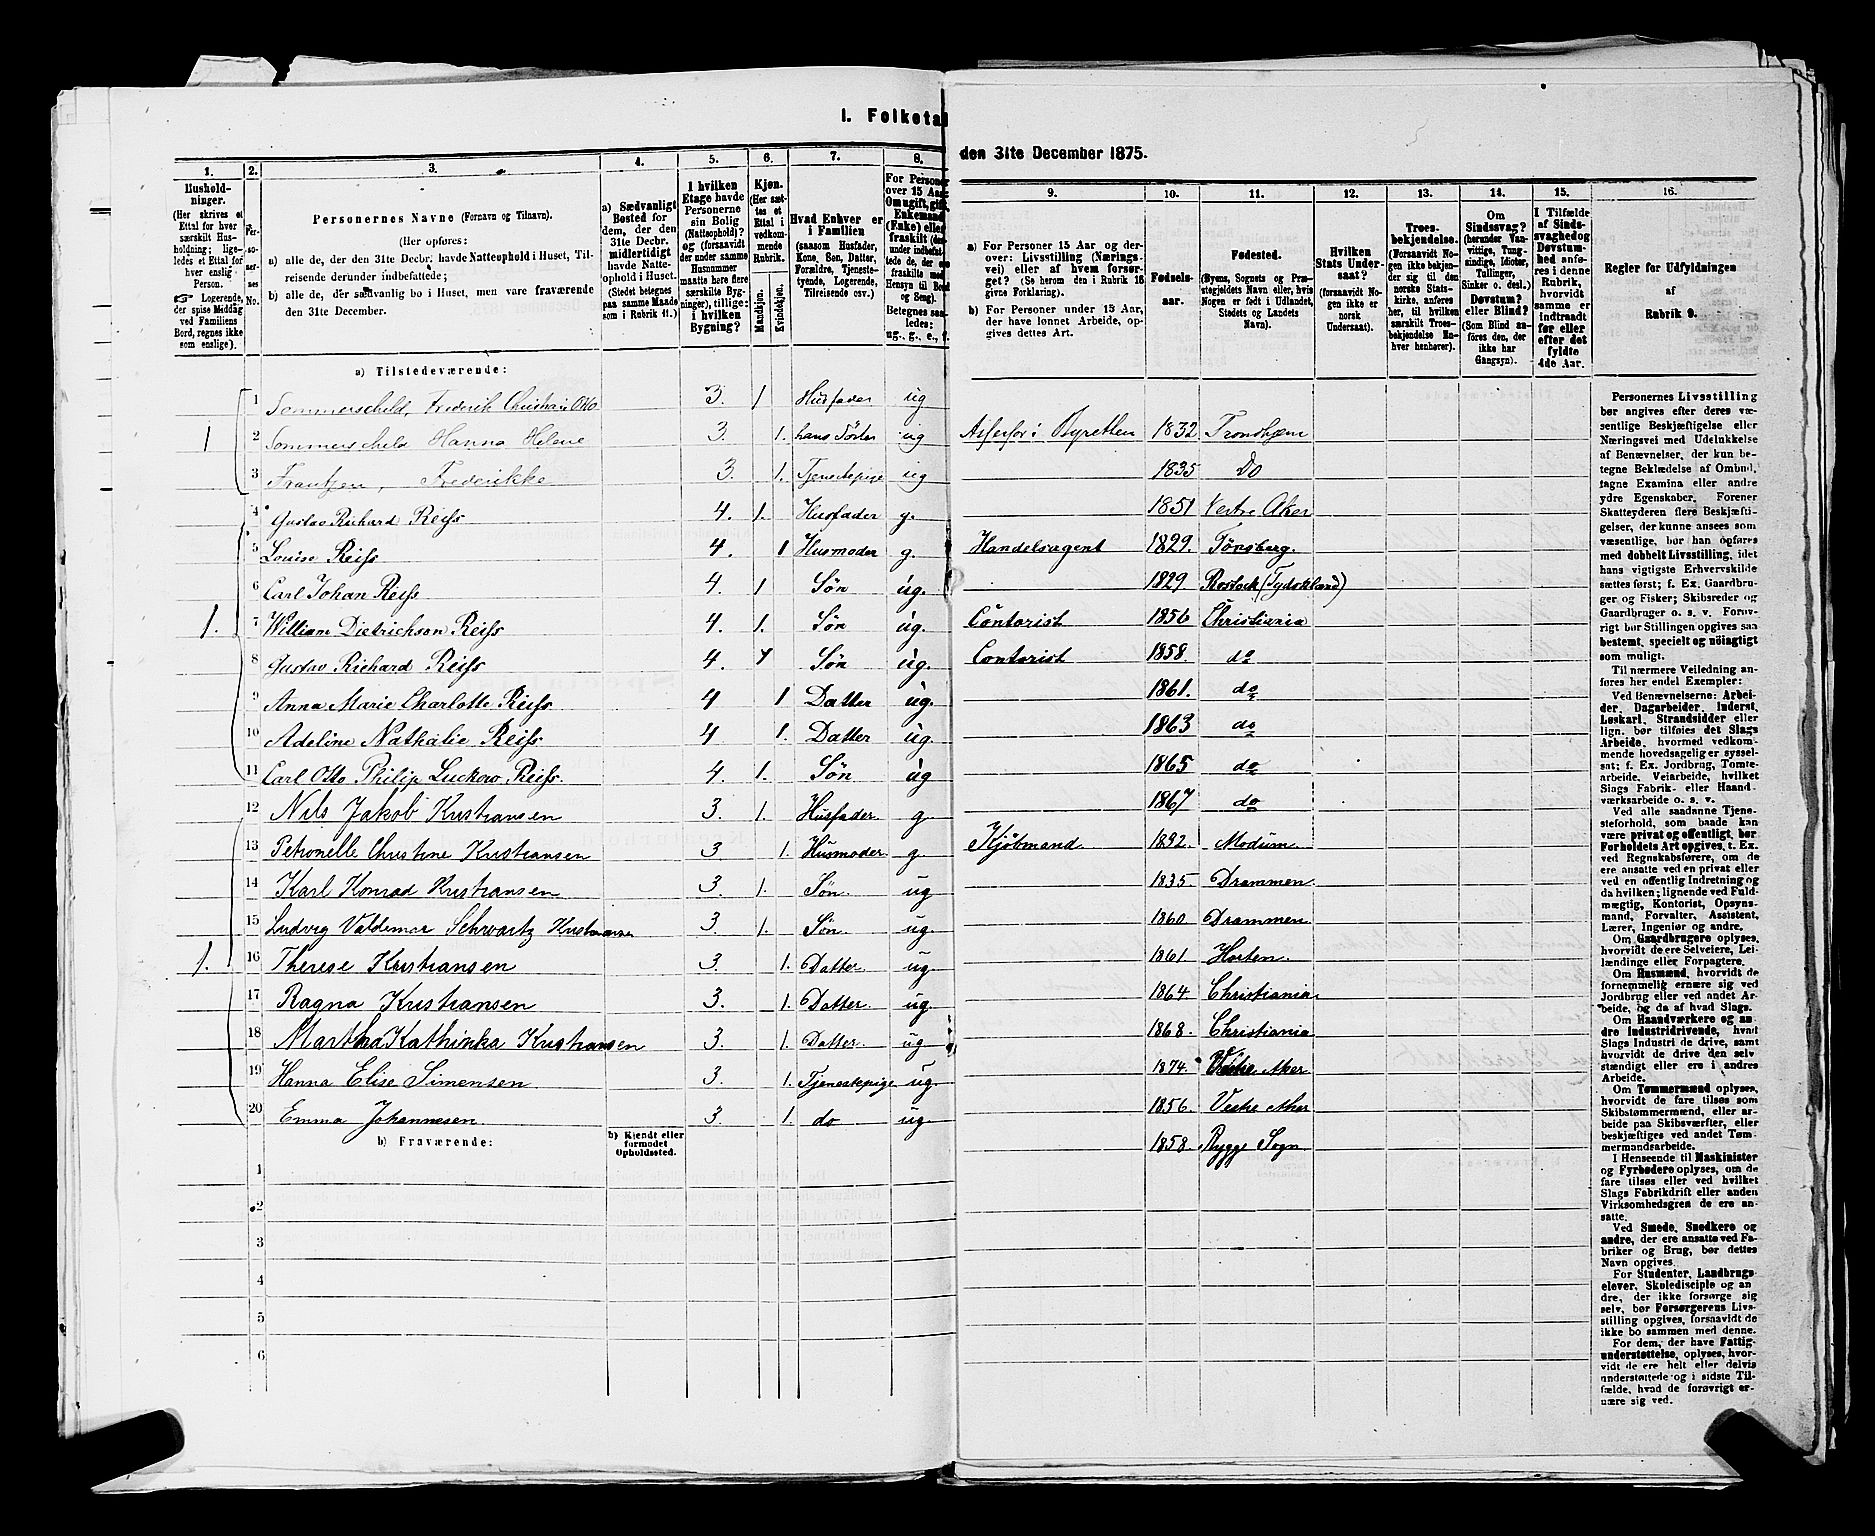 I. Folketal
den 31te December 1875.
1. 2. 3. 4. 5. 6. 7. 8. 9. 10. 11. 12. 13. 14. 15. 16.
Husholdninger.
(Her skrives et Ettal for hver særskilt Husholdning; ligeledes et Ettal for hver enslig Person.
☞ Logerende, der spise Middag ved Familiens Bord, regnes ikke som enslige).
Personernes No.
Personernes Navne (Fornavn og Tilnavn).
(Her opføres:
a) alle de, der den 31te Decbr. havde Natteophold i Huset, Tilreisende derunder indbefattede;
b) alle de, der sædvanlig bo i Huset, men vare fraværende den 31te December.
a) Sædvanligt Bosted for dem, der den 31te Decbr. midlertidigt havde Natteophold i Huset. (Stedet betegnes paa samme Maade som i Rubrik 11.)
I hvilken Etage havde Personerne sin Bolig (Natteophold)? og (forsaavidt der under samme Husnummer maatte høre flere særskilte Bygninger), tillige: i hvilken Bygning?
Kjøn. (Her sættes et Ettal i vedkommende Rubrik.
Mandkjøn. Kvindekjøn.
Hvad Enhver er i Familien (saasom Husfader, Kone, Søn, Datter, Forældre, Tjenestetyende, Logerende, Tilreisende osv.)
For Personer over 15 Aar: Om ugift, gift, Enkemand (Enke) eller fraskilt
Betegnes saaledes: ug., g., e., f.
a) For Personer 15 Aar og derover: Livsstilling (Næringsvei) eller af hvem forsørget? (Se herom den i Rubrik 16 givne Forklaring).
b) For Personer under 15 Aar, der have lønnet Arbeide, opgives dettes Art.
Fødselsaar.
Fødested.
(Byens, Sognets og Præstegjeldets Navn eller, hvis Nogen er født i Udlandet, Stedets og Landets Navn).
Hvilken Stats Undersaat? (forsaavidt Nogen ikke er norsk Undersaat).
Troesbekjendelse. (Forsaavidt Nogen ikke bekjender sig til den norske Statskirke, anføres her, til hvilken særskilt Troesbekjendelse Enhver henhører).
Om Sindssvag? (herunder Vanvittige, Tungsindige, Idioter, Tullinger, Sinker o. desl.) Døvstum? eller Blind? (Som Blind anføres den, der ikke har Gangsyn).
I Tilfælde af Sindssvaghed og Døvstumhed anføres i denne Rubrik, hvorvidt samme er indtraadt før eller efter det fyldte 4de Aar.
Regler for Udfyldningen af Rubrik 9.
a) Tilstedeværende:
1 Sommerschild, Frederik Christian Otto 3. 1 Husfader ug
1 2 Sommerschild Hanna Helene 3. 1. hans Søster ug Assessor i Byretten 1832 Trondhjem
3 Frantzen, Frederikke 3. 1. Tjenestepige ug 1835 Do
4 Gustav Richard Reiss 4. 1. Husfader g. 1851 Vestre Aker
5 Louise Reiss 4. 1 Husmoder g. Handelsagent 1829. Tönsberg.
6 Carl Johan Reiss 4. 1 Søn ug. 1829 Rostock (Tydskland)
1. 7 William Dietrichson Reiss 4. 1. Søn ug. Contorist 1856 Christiania
8 Gustav Richard Reiss 4. 1 Søn ug. Contorist 1858. do
9 Anna Marie Charlotte Reiss 4 1 Datter ug. 1861. do
10 Adeline Nathalie Reiss. 4 1. Datter ug. 1863 do
11 Carl Otto Philip Luckow Reiss. 4. 1. Søn ug 1865 do
12 Nils Jakob Kristiansen 3. 1. Husfader g. 1867 do
13 Petronelle Christine Kristiansen 3 1. Husmoder g. Kjöbmand 1832. Modum.
14 Karl Konrad Kristiansen 3. 1. Søn. ug 1835. Drammen.
15 Ludvig Valdemar Schwartz Kristiansen 3. 1. Søn ug 1860 Drammen
1. 16 Therese Kristiansen 3. 1. Datter ug 1861 Horten.
17 Ragna Kristiansen 3. 1. Datter. ug 1864. Christiania.
18 Martha Kathinka Kristiansen 3. 1. Datter. ug 1868. Christiania
19 Hanna Elise Simensen 3. 1. Tjenestepige ug. 1874. Vestre Aker
20 Emma Johannesen 3. 1. do ug. 1856. Vestre Aker
b) Fraværende: b) Kjendt eller formodet Opholdssted. 1858. Rygge Sogn
1
2
3
4
5
6
Personernes Livsstilling bør angives efter deres væsentlige Beskjæftigelse eller Næringsvei med Udelukkelse af Benævnelser, der kun betegne Beklædelse af Ombud, tagne Examina eller andre ydre Egenskaber. Forener Skatteyderen flere Beskjæftigelser, der kunne ansees som væsentlige, bør han opføres med dobbelt Livsstilling, idet hans vigtigste Erhvervskilde sættes først; f. Ex. Gaardbruger og Fisker; Skibsreder og Gaardbruger o. s. v. Forøvrigt bør Stillingen opgives saa bestemt, specielt og nøiagtigt som muligt.
Til nærmere Veiledning anføres her endel Exempler:
Ved Benævnelserne: Arbeider, Dagarbeider, Inderst, Løskarl, Strandsidder eller lign. bør tilføies det Slags Arbeide, hvormed vedkommende hovedsagelig er sysselsat; f. Ex. Jordbrug, Tomtearbeide, Veiarbeide, hvilket Slags Fabrik- eller Haandværksarbeide o. s. v.
Ved alle saadanne Tjenesteforhold, som baade kan være privat og offentligt, bør Forholdets Art opgives, t. Ex. ved Regnskabsførere, om de ere ansatte ved en privat eller ved en offentlig Indretning og da hvilken; lignende ved Fuldmægtig, Kontorist, Opsynsmand, Forvalter, Assistent, Lærer, Ingeniør og andre.
Om Gaardbrugere oplyses, hvorvidt de ere Selveiere, Leilændinge eller Forpagtere.
Om Husmænd, hvorvidt de fornemmelig ernære sig ved Jordbrug eller ved andet Arbeide, og da af hvad Slags.
Om Haandværkere og andre Industridrivende, hvad Slags Industri de drive, samt hvorvidt de drive den selvstændigt eller ere i andres Arbeide.
Om Tømmermænd oplyses, hvorvidt de fare tilsøs som Skibstømmermænd, eller arbeide paa Skibsværfter, eller beskjæftiges ved andet Tømmermandsarbeide.
I Henseende til Maskinister og Fyrbødere oplyses, om de fare tilsøs eller ved hvilket Slags Fabrikdrift eller anden Virksomhedsgren de ere ansatte.
Ved Smede, Snedkere og andre, der ere ansatte ved Fabriker og Brug, bør dettes Navn opgives.
For Studenter, Landbrugselever, Skoledisciple og andre, der ikke forsørge sig selv, bør Forsørgerens Livsstilling opgives, forsaavidt de ikke bo sammen med denne.
For dem, der have Fattigunderstøttelse, oplyses, hvorvidt de ere helt eller delvis understøttede og i sidste Tilfælde, hvad de forøvrigt ernære sig ved.